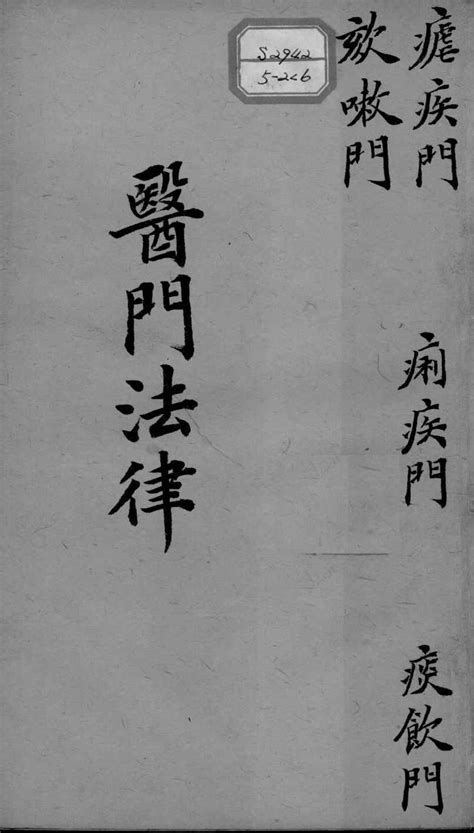 瘧疾門
痢疾門
痰飲門
欬嗽門
醫門法律
S2942
5-2<6